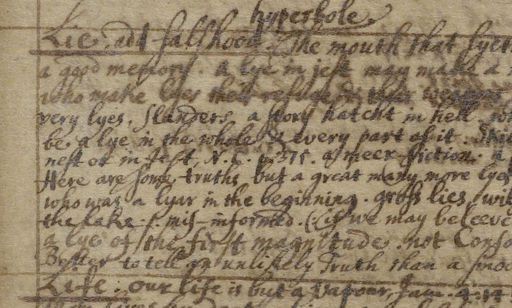 hyperbole.
Lie. add falshood. The mouth that lyeth
a good memory. a lye in jest may make a
who make lyes their refuge
very lyes, slanders, a story hatcht in hell.
be a lye in the whole & every part of it.
nest or in jest, N. C. p. 375. a meer fiction. a
Here are some truths but a great many more lyes
who was a lyar in the beginning. gross lies, wil
the Lake. mis-informed. (if we may beleeve
a lye of the first magnitude. not Conso
Better to tell an unlikely Truth than a smo
Life. our life is but a vapour, Jam. 4. 14